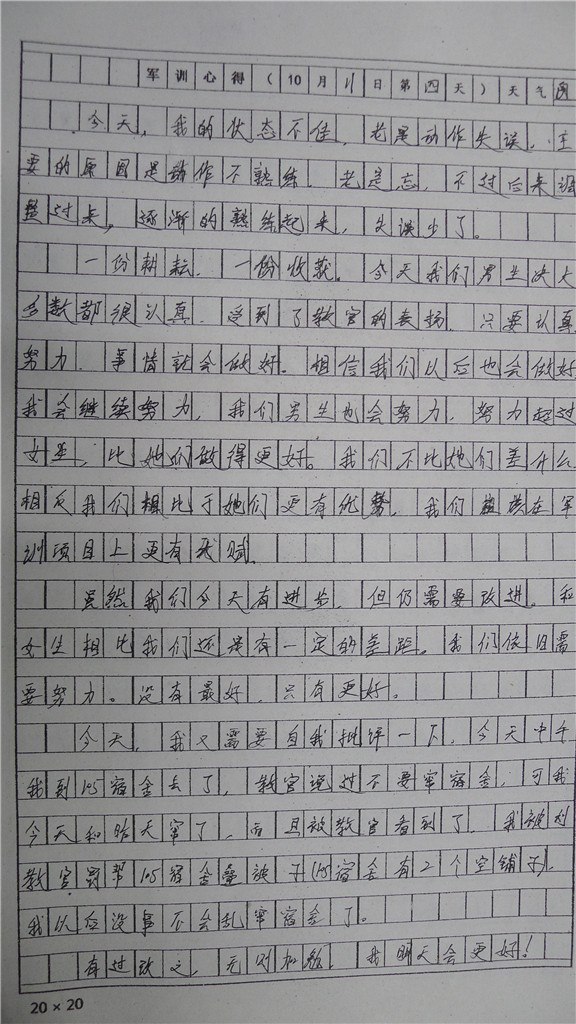 军训心得(10月11日第四天)天气
今天,我的状态不佳,老是动作失误。主
要的原因是动作不熟练,老是忘,不过后来调
整过来,逐渐的熟练起来,失误少了。
一份耕耘,一份收获。今天我们男生决大
多数都很认真,受到了教官的表扬,只要认真
努力,事情就会做好。相信我们以后也会做好
我会继续努力,我们男生也会努力,努力超过
女生,比她们做得更好。我们不比她们差什么
相反我们相比于她们更有优势,我们应该在军
训项目上更有天赋。
虽然我们今天有进步,但仍需要改进。和
女生相比我们还是有一定的差距。我们依旧需
要努力。没有最好,只有更好。
今天,我又需要自我批评一下,今天中午
我到105宿舍去了,教官说过不要窜宿舍,可我
今天和昨天窜了,而且被教官看到了,我被刘
教官罚帮105宿舍叠被子(105宿舍有2个空铺子),
我以后没事不会乱窜宿舍了。
有过改之,无则加勉,我明天会更好!
20×20